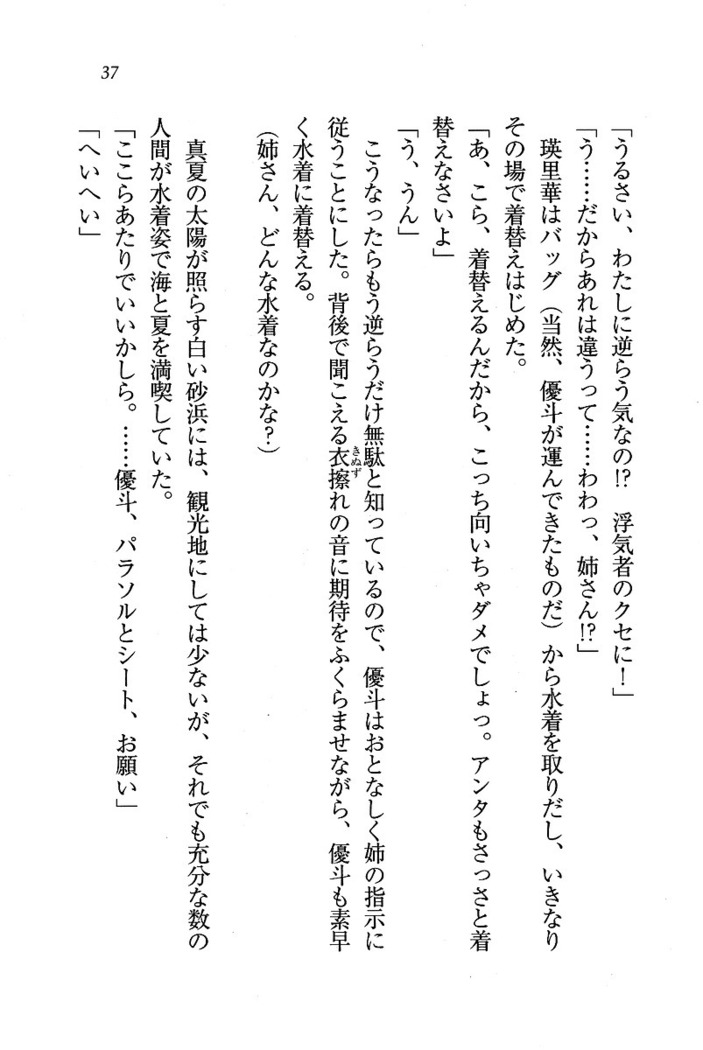 37
「うるさい、わたしに逆らう気なの!?　浮気者のクセに！」
「う……だからあれは違うって……わわっ、姉さん!?」
　瑛里華はバッグ（当然、優斗が運んできたものだ）から水着を取りだし、いきなり
その場で着替えはじめた。
「あ、こら、着替えるんだから、こっち向いちゃダメでしょっ。アンタもさっさと着
替えなさいよ」
「う、うん」
　こうなったらもう逆らうだけ無駄と知っているので、優斗はおとなしく姉の指示に
従うことにした。背後で聞こえる衣擦れの音に期待をふくらませながら、優斗も素早
きぬず
く水着に着替える。
（姉さん、どんな水着なのかな？）
　真夏の太陽が照らす白い砂浜には、観光地にしては少ないが、それでも充分な数の
人間が水着姿で海と夏を満喫していた。
「ここらあたりでいいかしら。……優斗、パラソルとシート、お願い」
「へいへい」